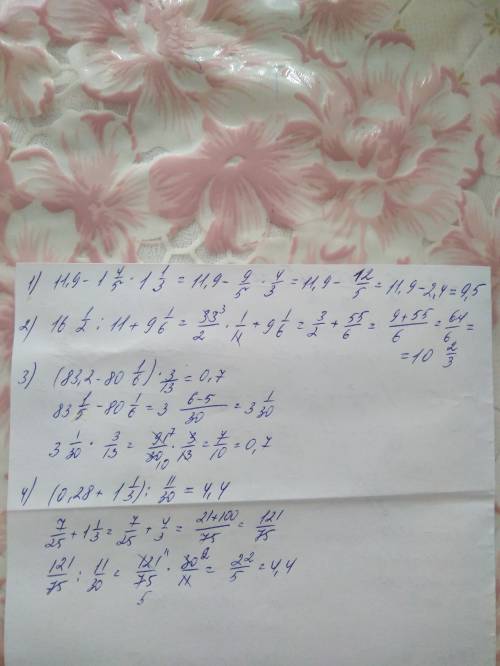 1) 11,9 - 1 4/5 · 1 1/3 = 11,9 - 9/5 · 4/3 = 11,9 - 12/5 = 11,9 - 2,4 = 9,5
2) 16 1/2 : 11 + 9 1/6 = 33³/2 · 1/11 + 9 1/6 = 3/2 + 55/6 = 9+55/6 = 64/6 =
= 10 2/3
3) (83,2 - 80 1/6) · 3/13 = 0,7
83 1/5 - 80 1/6 = 3 6-5/30 = 3 1/30
3 1/30 · 3/13 = 91⁷/30₁₀ · 3/13 = 7/10 = 0,7
4) (0,28 + 1 1/3) : 11/30 = 4,4
7/25 + 1 1/3 = 7/25 + 4/3 = 21+100/75 = 121/75
121/75 : 11/30 = 121¹¹/75₅ · 30²/11 = 22/5 = 4,4